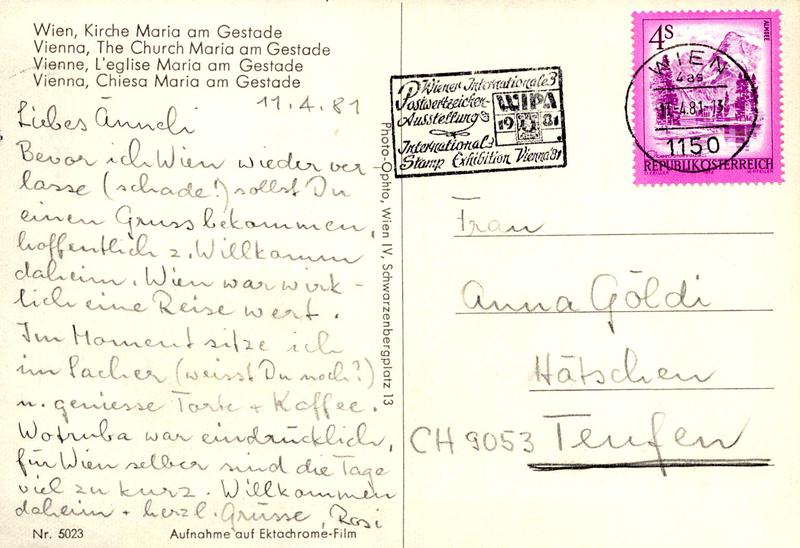 Wien, Kirche Maria am Gestade
Vienna, The Church Maria am Gestade
Vienne, L'eglise Maria am Gestade
Vienna, Chiesa Maria am Gestade
11.4.81
Liebes Änneli
Bevor ich Wien wieder ver
lasse (schade!) sollst Du
einen Gruss bekommen,
hoffentlich z. Willkomm
daheim. Wien war wirk-
lich eine Reise wert.
Im Moment sitze ich
im Sacher (weisst Du noch?)
u. geniesse Torte + Kaffee.
Wotruba war eindrücklich,
für Wien selber sind die Tage
viel zu kurz. Willkommen
daheim + herzl. Grüsse, Rosi
Nr. 5023
Aufnahme auf Ektachrome-Film
Photo-Ophto, Wien IV, Schwarzenbergplatz 13
Wiener Internationale
Postwertzeichen-
Ausstellung
WIPA
1981
International
Stamp Exhibition Vienna'81
4s
ALMSEE
REPUBLIK ÖSTERREICH
WIEN
-4.81-13
1150
Frau
Anna Göldi
Hätschen
CH 9053 Teufen